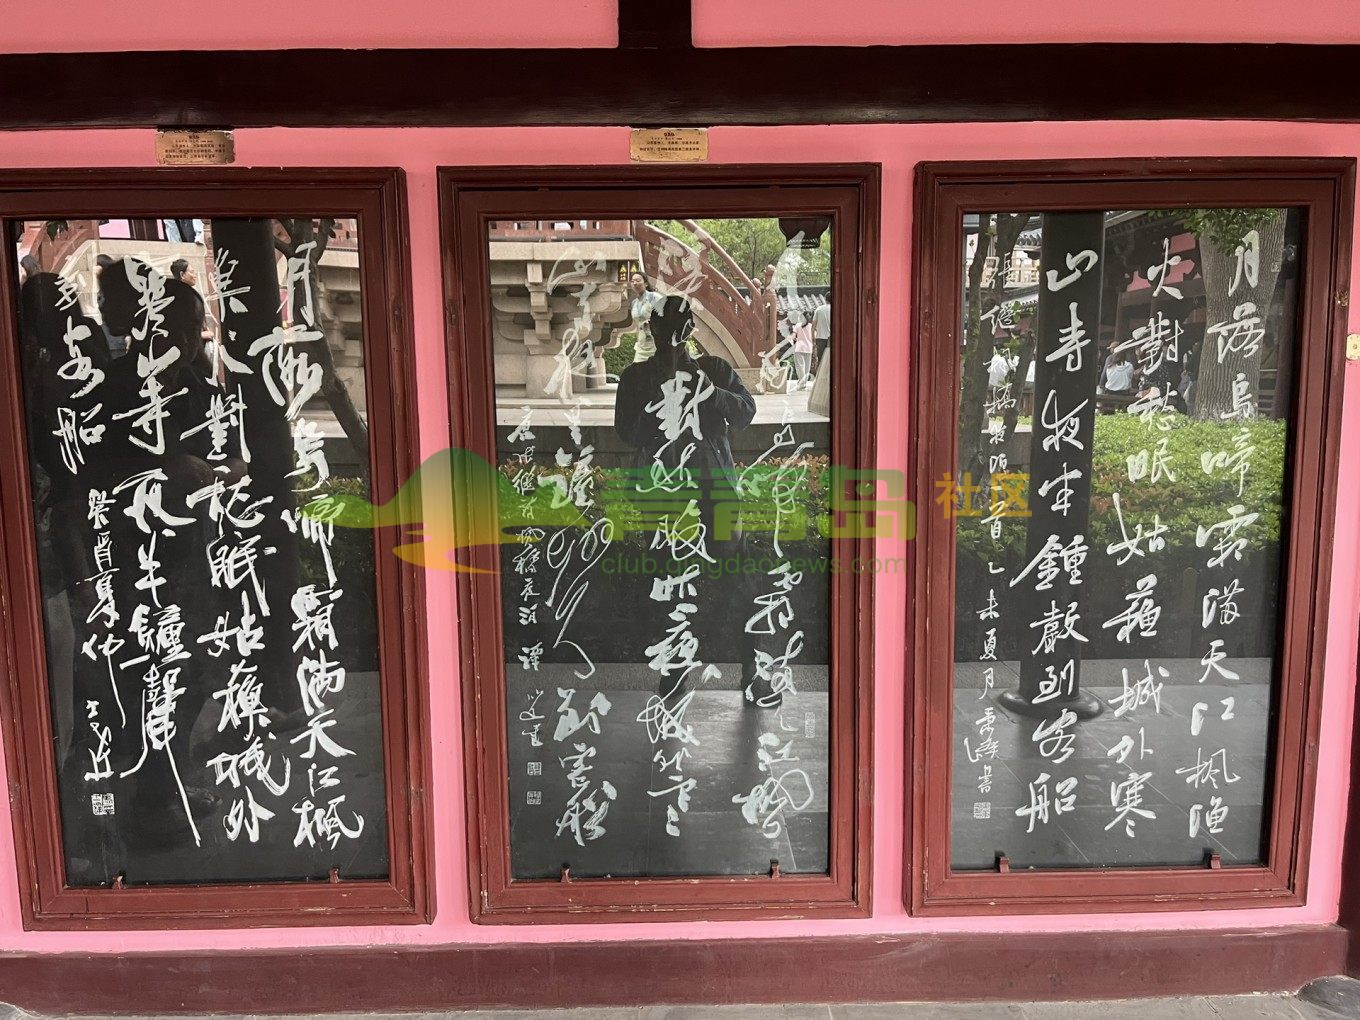 月落烏啼霜滿天江楓漁
火對愁眠姑蘇城外寒
山寺夜半鍾聲到客船
張繼楓橋夜泊一首乙未夏月書
月落烏啼霜滿天江楓
漁火對愁眠姑蘇城外寒
山寺夜半鐘聲到客船
唐張繼詩楓橋夜泊
月落烏啼霜滿天江楓
漁火對愁眠姑蘇城外
寒山寺夜半鐘聲
到客船
癸酉夏仲
青青岛社区
club.qingdaonews.com